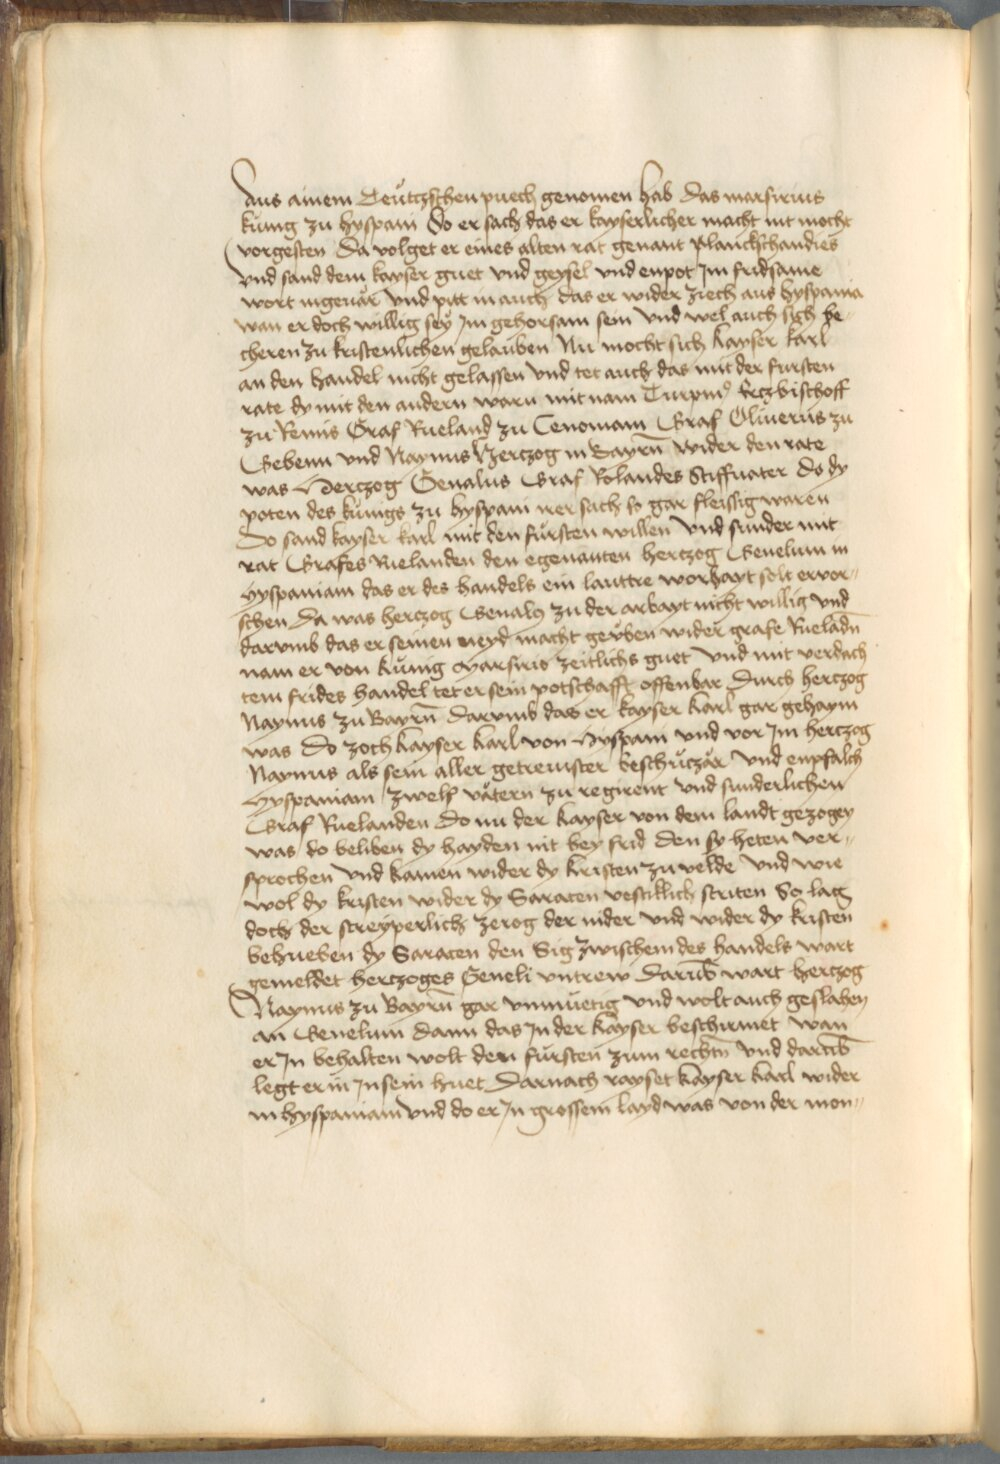 Aus ainem Deutzschen puech genomen hab das marsirius
kunig zu hyspani Do er sach das er kayserlicher macht nit mocht
vorgesten Da volget er eines alten rat genant Planckschandies
vnd sand dem kayser guet vnd geysel vnd enpot Jm fridsame
wort ingeuär vnd pitt in auch das er wider ziech aus hyspania
wan er doch willig sey Jm gehorsam sein vnd wel auch sich be-
cheren zu kristenlichen gelauben Nu mocht sich kayser karl
an den handel nicht gelassen vnd tet auch das mit der fursten
rate dy mit den andern warn mit nam Turpin9 Erczbischoff
zu Remis Graf Rueland zu Cenomani Graf Oliuerus zu
Gebenn vnd Naymus Herczog in Bayrn̄ wider den rate
was Herczog Genalus Graf Rolandes Stiffuater Do dy
poten des kunigs zu hyspani
 so gar fleissig waren
Do sand kayser karl mit den fürsten willen vnd sunder mit
rat Grafes Ruelanden den egenanten herczog Genelum in
hyspaniam das er des handels ein lauttre worhayt solt ervor-
schen Da was herczog Genal9 zu der arbayt nicht willig vnd
darvmb das er seinen neyd macht geüben wider grafe Ruelādn̄
nam er von kunig Marsirio zeitlichs guet vnd mit verdach
tem frides handel tet er sein potschafft offenbar Durch herczog
Naymus zu Bayrn̄ darvmb das er kayser karl gar gehaym
was Do zoch kayser karl von Hyspani vnd vor Jm herczog
Naymus als sein aller getreuister beschüczär vnd enpfalch
Hyspaniam zwelf vätern zu regirent vnd sunderlichen
Graf Ruelanden Do nu der kayser von dem landt gezogen
was do beliben dy hayden nit bey frid den sy heten ver-
sprochen vnd kamen wider dy kristen zu velde vnd wie
wol dy kristen wider dy Saracen vestiklich striten So lag
doch der streyperlich zerog der nider vnd wider dy kristen
behueben dy Saracen den Sig zwischem des handels wart
gemeldet herczoges Geneli vntrew Darūb wart herczog
Naymus zu Bayrn̄ gar vnmuetig vnd wolt auch geslahen
an Genelum dann das in der kayser beschirmet wan
er Jn behalten wolt den fürsten zum rechtn̄ vnd darūb
legt er in Jn sein huet Darnach rayset kayser karl wider
in hyspaniam vnd do er Jn grossem layd was von der mon-